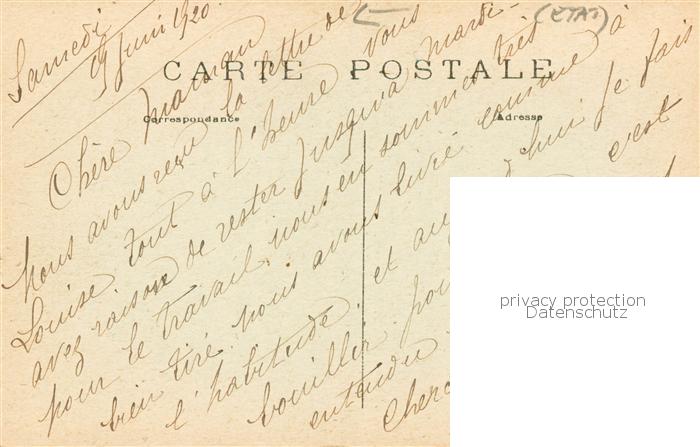 (ETAT)
CARTE POSTALE
Correspondance
Adresse
Samedi
19 Juin 1920
Chère Maman
Nous avons reçu la lettre de
Louise tout à l'heure vous
avez raison de rester jusqu'à mardi
pour le travail nous en sommes très
bien tiré nous avons livré comme à
l'habitude. et au hui je fais
bouillir pou c'est
entendu
Cher
privacy protection
Datenschutz